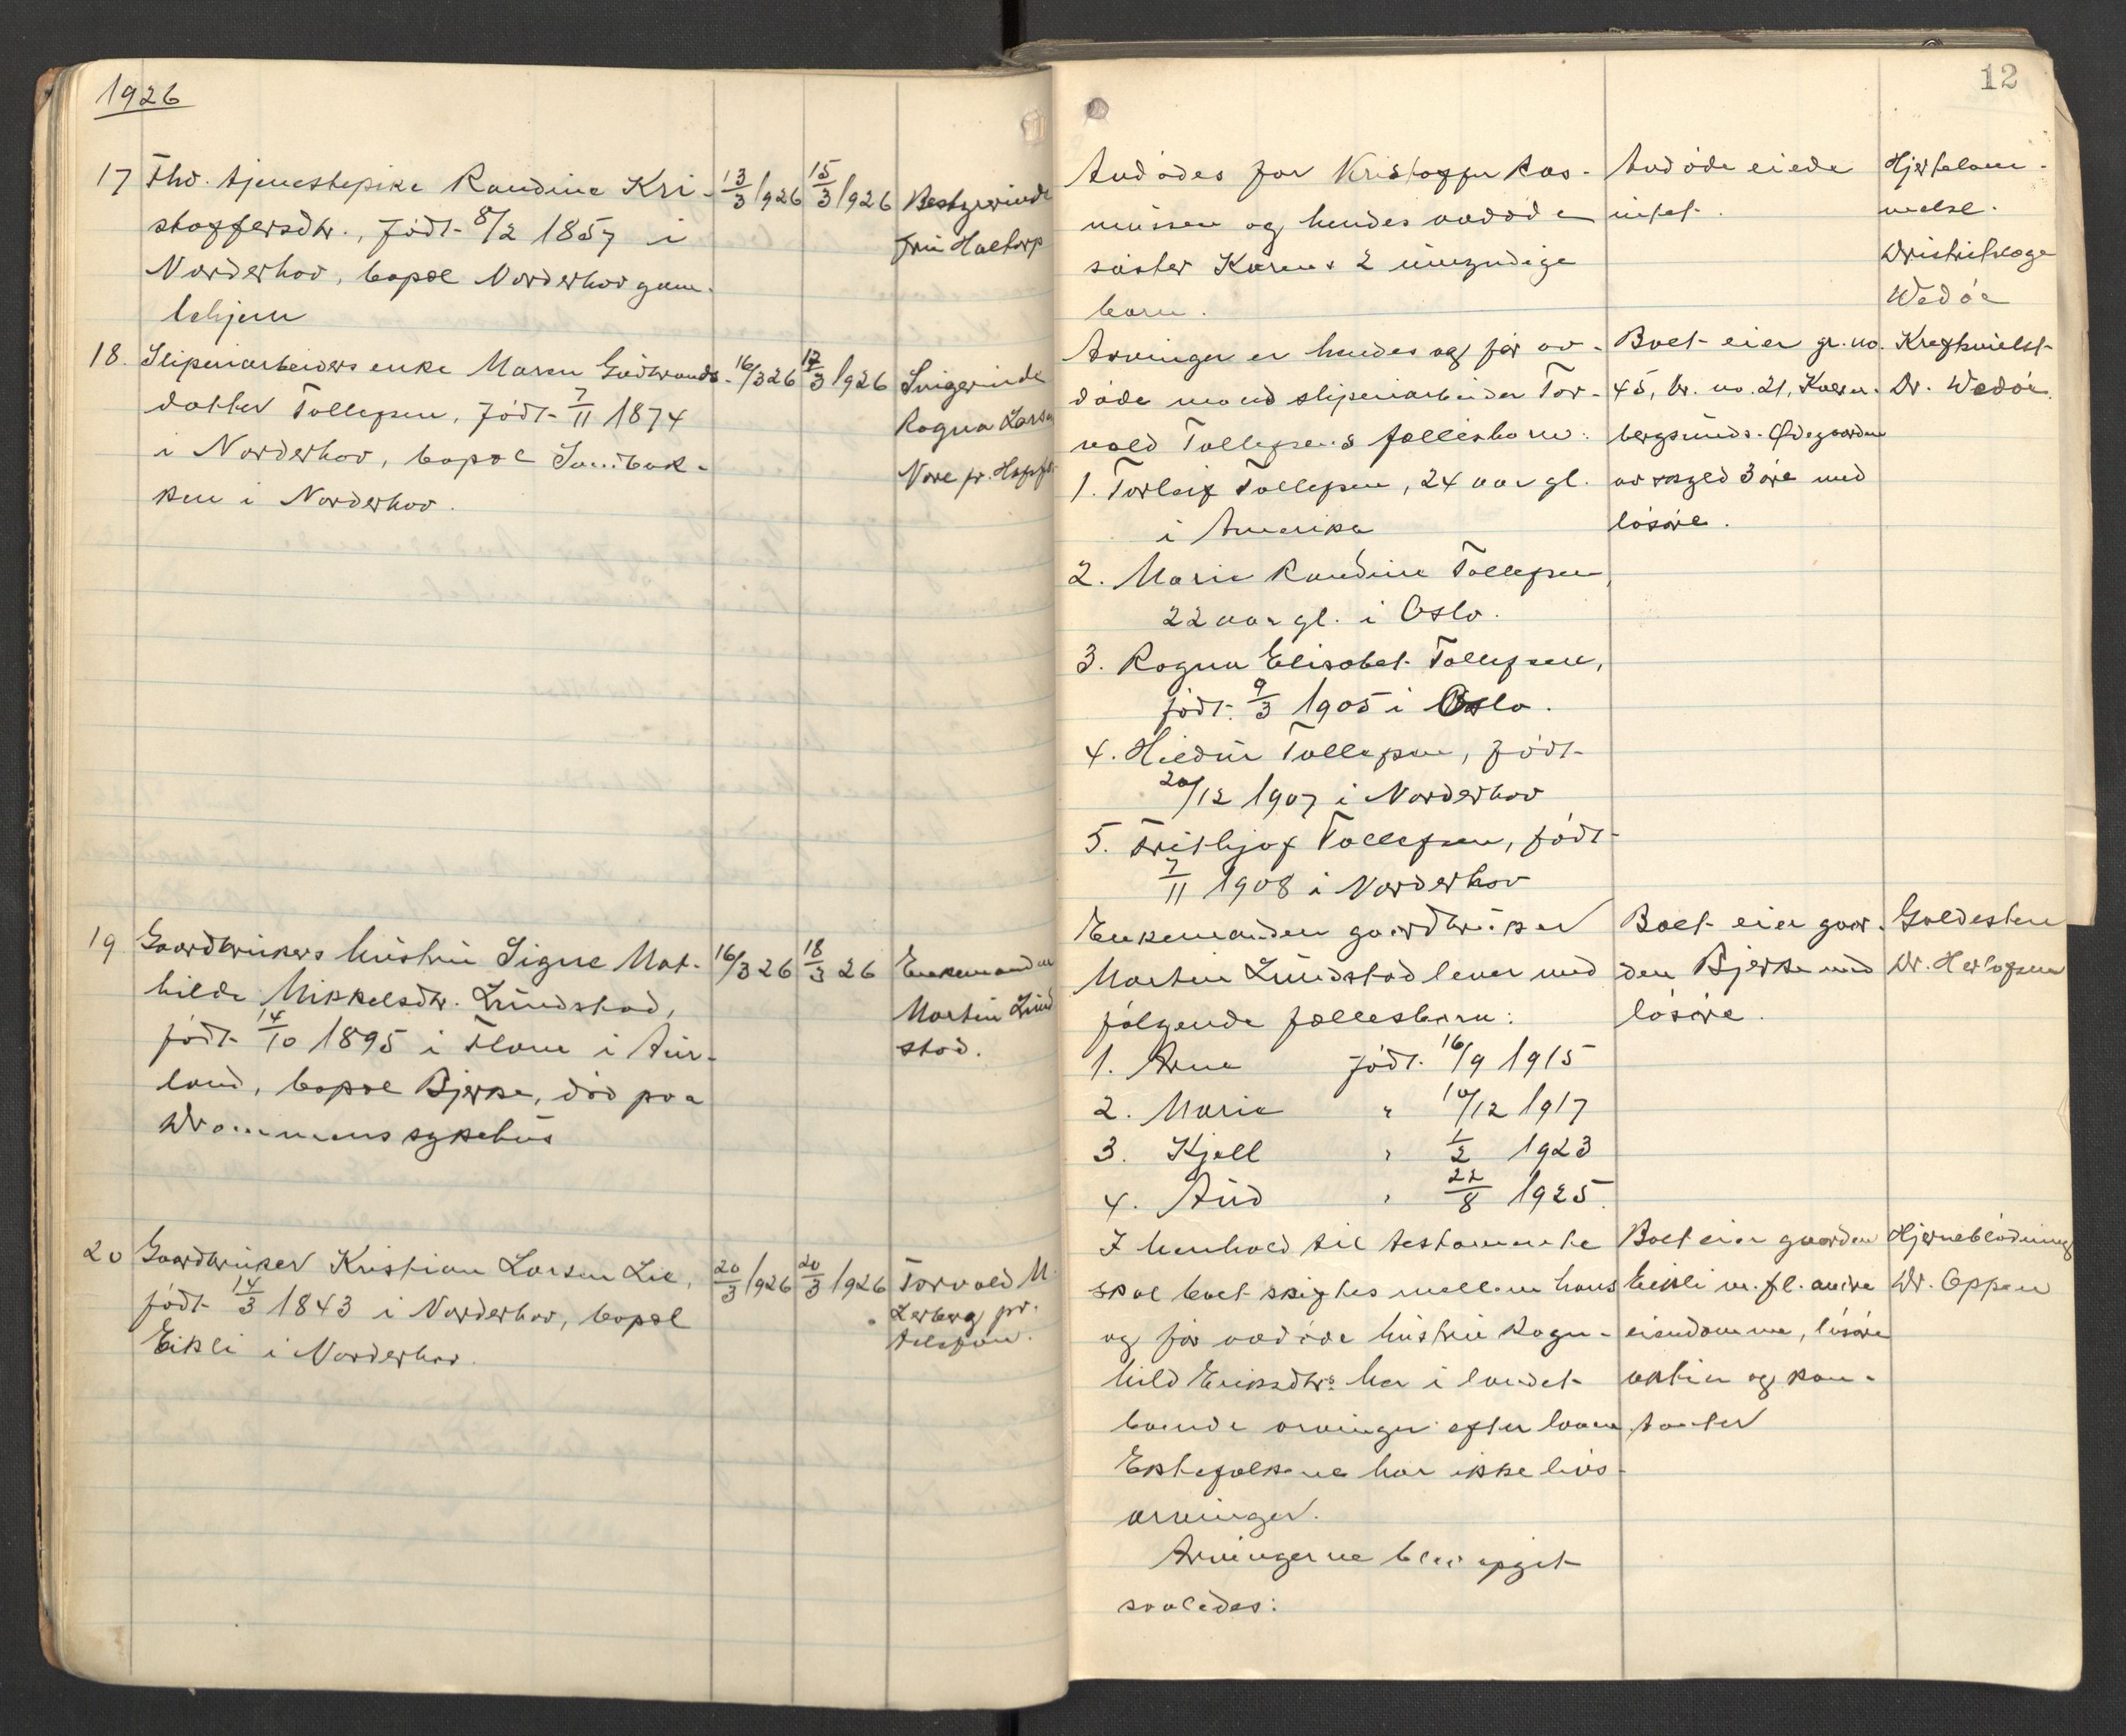 1926
12
17 Fhv. tjenestepike Randine Kri-
stoffersdtr., født 8/2 1857 i
Norderhov, bopæl Norderhov gam-
lehjem
13/3 1926
15/3 1926
Bestyrerinde
fru Haltorp
Avdødes far Kristoffer Ras-
mussen og hendes avdøde
søster Karens 2 umyndige
barn.
Avdøde eiede
intet.
Hjertelam-
melse.
Distriktslæge
Wedøe
18. Sliperiarbeiders enke Maren Gudbrands-
datter Tollefsen, født 7/11 1874
i Norderhov, bopæl Sandbak-
ken i Norderhov.
16/3 26
17/3 1926
Svigerinde
Ragna Larsen
Vore pr.
Arvinger er hendes og før av-
døde mand sliperiarbeider Tor-
vald Tollefsens fællesbarn:
1. Torleif Tollefsen, 24 aar gl.
i Amerika
2. Marie Randine Tollefsen,
22 aar gl. i Oslo.
3. Ragna Elisabet Tollefsen,
født 9/3 1905 i Oslo.
4. Hjedur Tollefsen, født
20/12 1907 i Norderhov
5. Frithjof Tollefsen, født
7/11 1908 i Norderhov
Boet eier gr. no.
45, br. no. 21,
bergsunds-Ødegaarden
av skyld 3 øre med
løsøre.
Kræftsvulst
Dr. Wedøe.
19 Gaardbrukers hustru Signe Mat-
hilde Mikkelsdtr. Lundstad,
født 14/10 1895 i Flaam i Aur-
land, bopæl Bjerke, død paa
Drammens sykehus
16/3 26
18/3 26
Enkemanden
Martin Lund
stad.
Enkemanden gaardbruker
Martin Lundstad lever med
følgende fællesbarn:
1. Arne født 16/9 1915
2. Marie " 10/12 1917
3. Kjell " 1/2 1923
4. Aud " 22/8 1925.
Boet eier gaar-
den Bjerke med
løsøre.
Galdesten
Dr. Herlofsen
20 Gaardbruker Kristian Larsen Lie,
født 14/3 1843 i Norderhov, bopæl
Eikli i Norderhov.
20/3 1926
20/3 1926
Torvald M.
Lerberg pr.
telefon.
I henhold til testamente
skal boet skiftes mellem hans
og før avdøde hustru Ragn-
hild Eriksdtrs her i landet
boende arvinger efter loven.
Ektefolkene har ikke livs-
arvinger.
Arvingerne blev opgit
saaledes:
Boet eier gaarden
Eikli m. fl. andre
eiendomme, løsøre
aktier og kon-
tanter
Hjerneblødning
Dr. Oppen